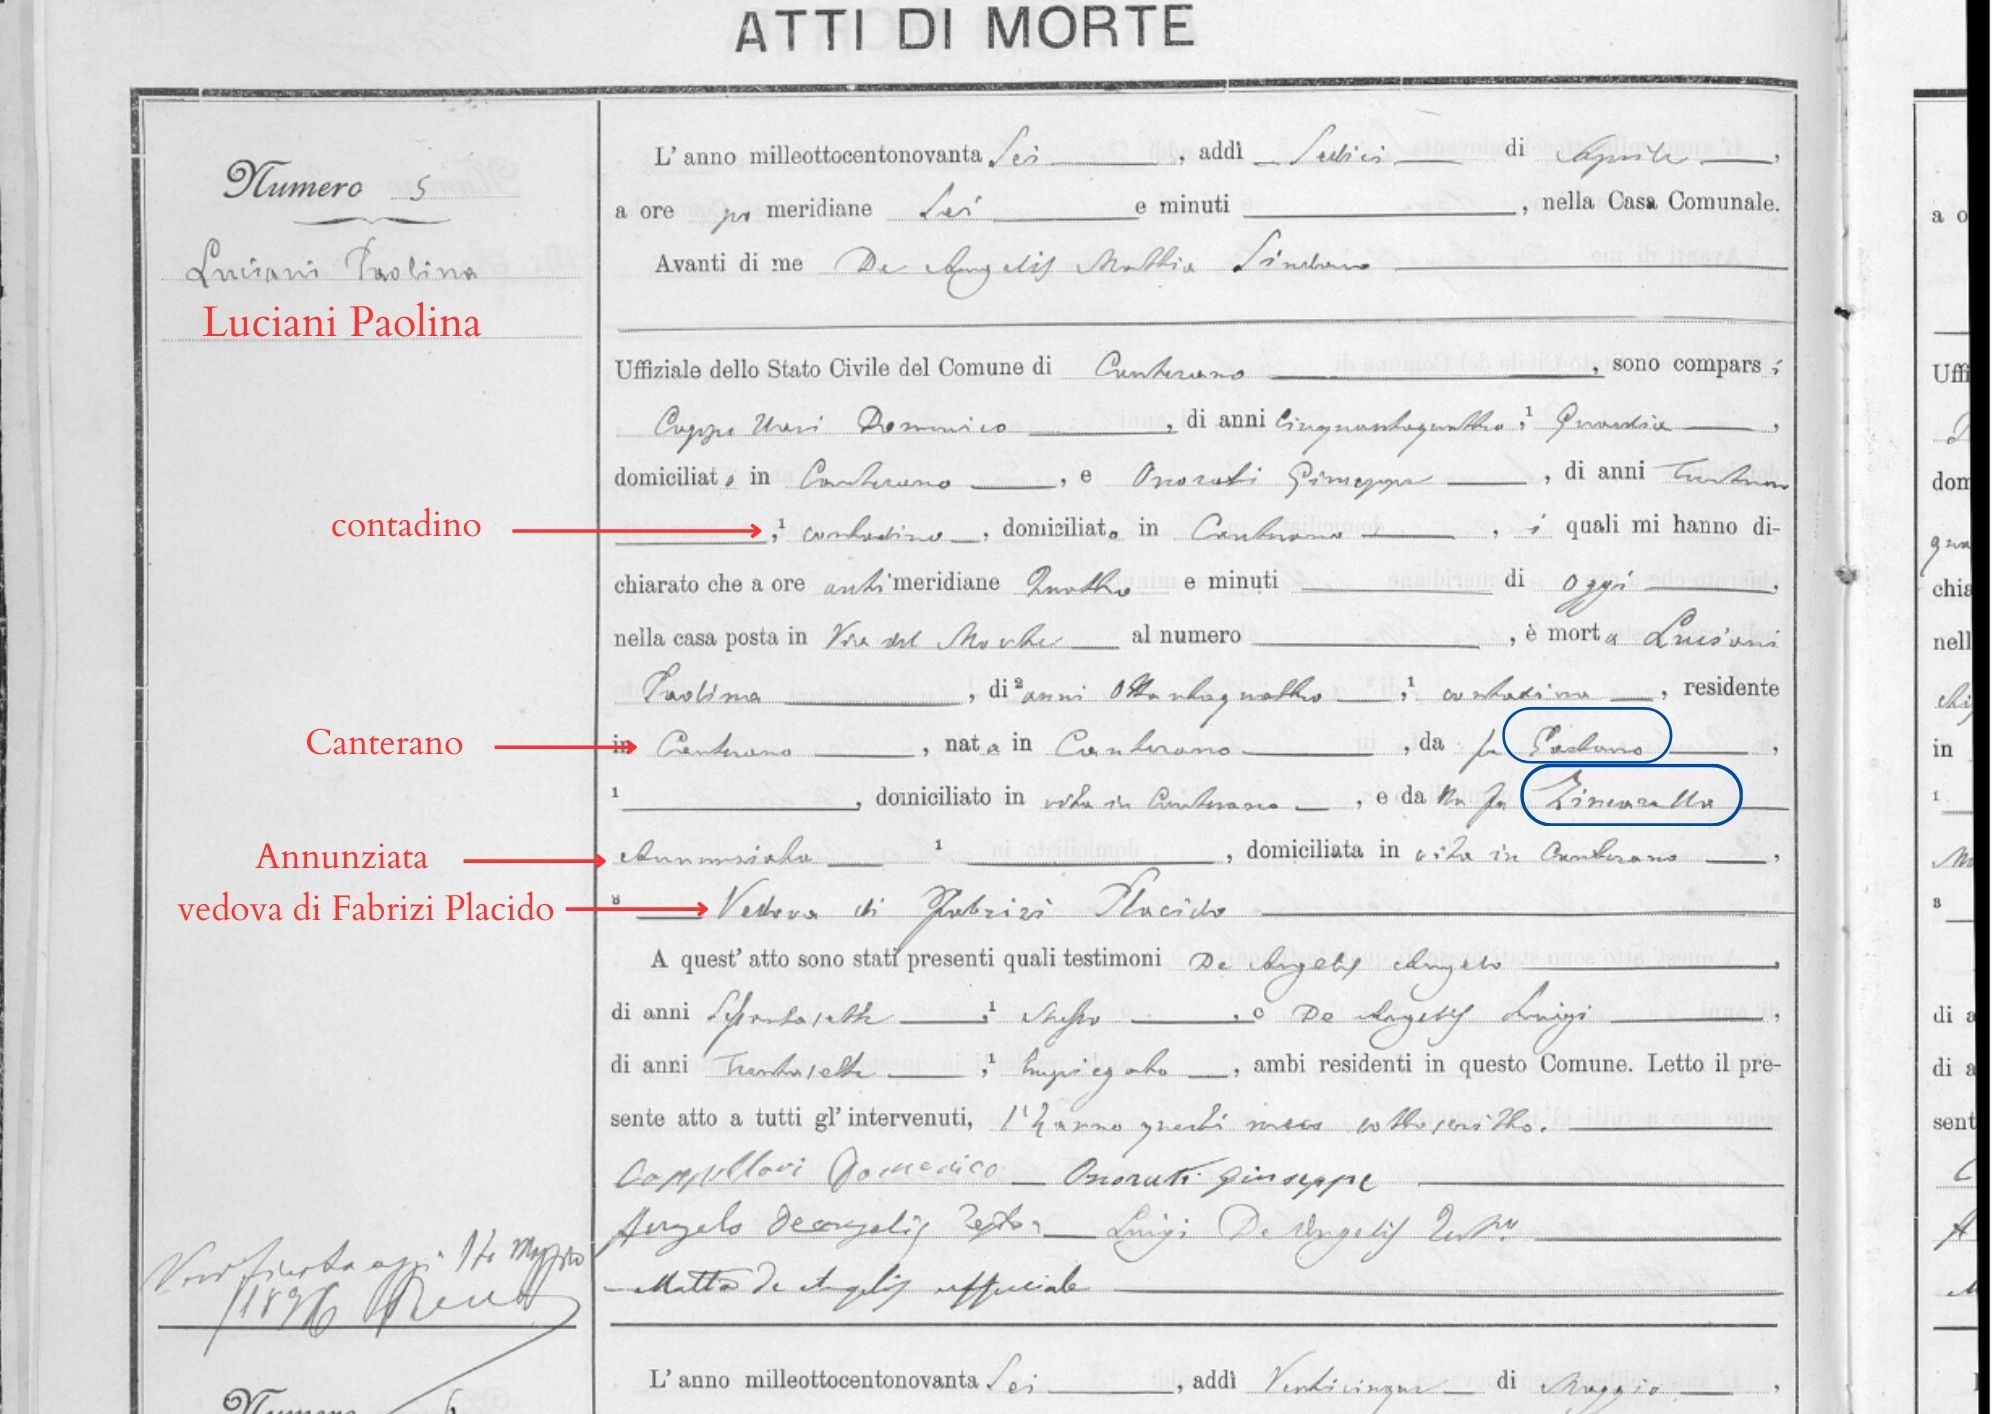 ATTI DI MORTE
Numero 5
Luciani Paolina
Luciani Paolina
L'anno milleottocentonovanta Sei, addì Sedici di Aprile,
a ore po meridiane Sei e minuti, nella Casa Comunale.
Avanti di me De Angelis Mattia Sindaco
Uffiziale dello Stato Civile del Comune di Canterano, sono comparsi
Domenico, di anni cinquantaquattro, ¹ Guardia,
domiciliato in Canterano, e Onorati Giuseppe, di anni
contadino
, ¹ contadino, domiciliato in Canterano, i quali mi hanno di-
chiarato che a ore anti meridiane Quattro e minuti di oggi,
nella casa posta in Via del al numero, è morta Luciani
Paolina, di ² anni Ottantaquattro, ¹ contadina, residente
Canterano
in Canterano, nata in Canterano, da fu Gaetano,
¹, domiciliato in vita in Canterano, e da fu
Annunziata
Annunziata ¹, domiciliata in vita in Canterano,
vedova di Fabrizi Placido
³ Vedova di Fabrizi Placido
A quest'atto sono stati presenti quali testimoni De Angelis Angelo
di anni Sessantasette, ¹, e De Angelis Luigi,
di anni Trentasette, ¹ impiegato, ambi residenti in questo Comune. Letto il pre-
sente atto a tutti gl'intervenuti, l'hanno questi meco sottoscritto.
Cappellari Domenico Onorati Giuseppe
Angelo Deangelis Luigi De Angelis
Mattia De Angelis ufficiale
Verificata oggi
1896
L'anno milleottocentonovanta Sei, addì Venticinque di Maggio,
Numero 6